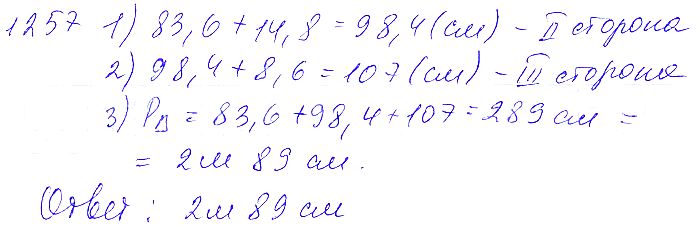 1257 1) 83,6 + 14,8 = 98,4 (см) – II сторона
2) 98,4 + 8,6 = 107 (см) – III сторона
3) P△ = 83,6 + 98,4 + 107 = 289 см =
= 2 м 89 см.
Ответ : 2 м 89 см